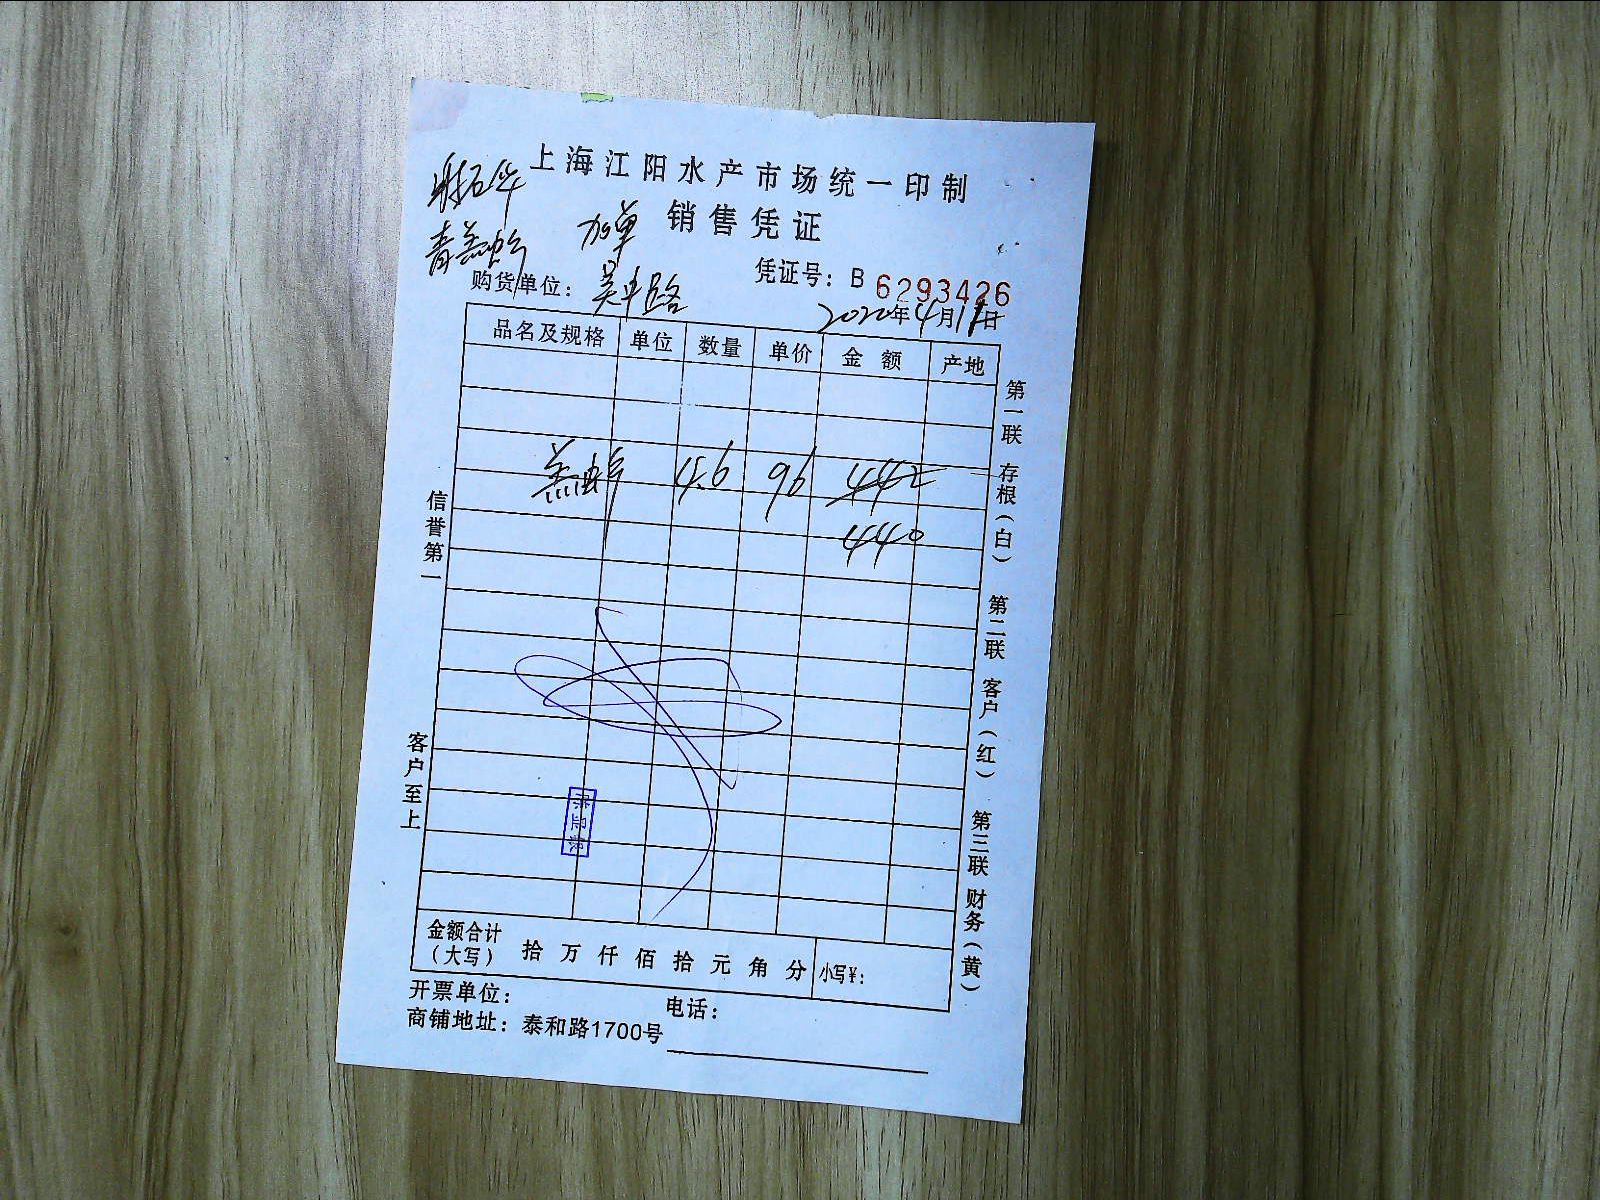 上海江阳水产市场统一印制
加单 销售凭证
凭证号：B 6293426
购货单位：吴中路
2020年4月11日
品名及规格 单位 数量 单价 金额 产地
4.6 96 442
440
金额合计（大写） 拾 万 仟 佰 拾 元 角 分 小写¥：
开票单位： 电话：
商铺地址：泰和路1700号
信誉第一
客户至上
第一联 存根（白）
第二联 客户（红）
第三联 财务（黄）